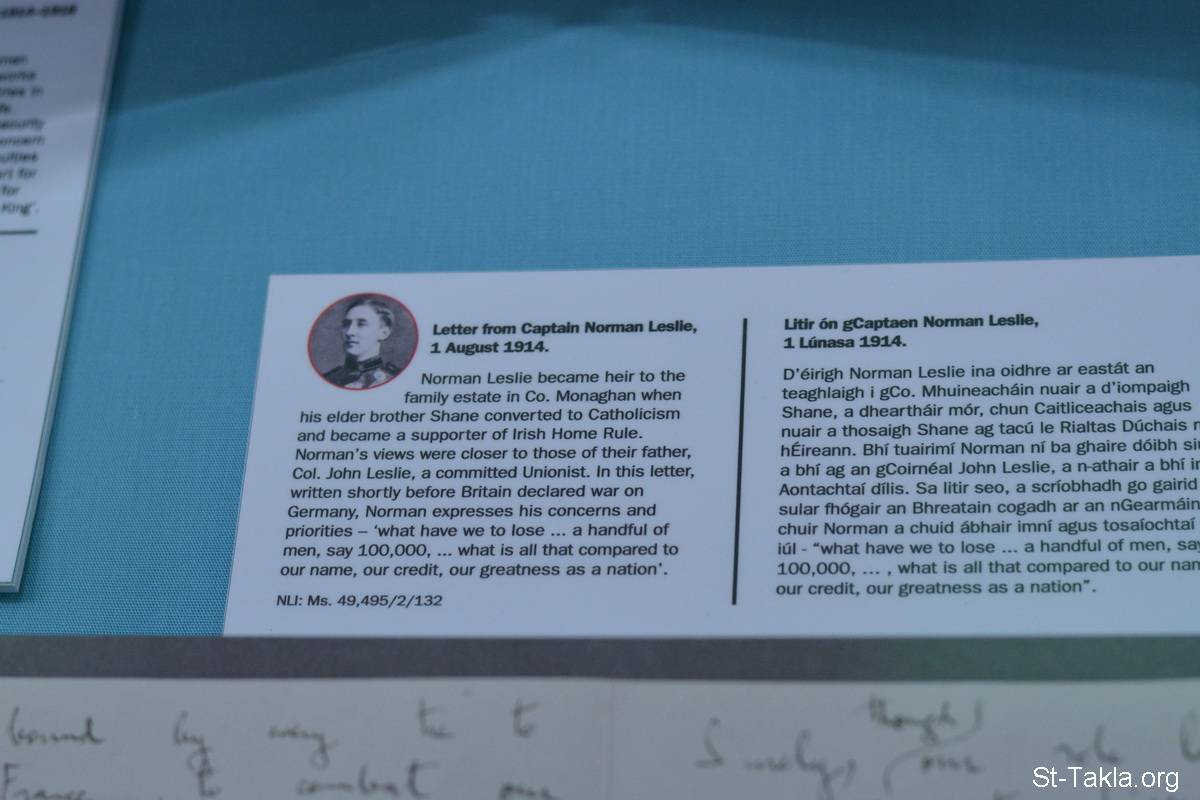 1914-1918
for
King'.
Letter from Captain Norman Leslie,
1 August 1914.
Norman Leslie became heir to the
family estate in Co. Monaghan when
his elder brother Shane converted to Catholicism
and became a supporter of Irish Home Rule.
Norman's views were closer to those of their father,
Col. John Leslie, a committed Unionist. In this letter,
written shortly before Britain declared war on
Germany, Norman expresses his concerns and
priorities – 'what have we to lose ... a handful of
men, say 100,000, ... what is all that compared to
our name, our credit, our greatness as a nation'.
NLI: Ms. 49,495/2/132
Litir ón gCaptaen Norman Leslie,
1 Lúnasa 1914.
D'éirigh Norman Leslie ina oidhre ar eastát an
teaghlaigh i gCo. Mhuineacháin nuair a d'iompaigh
Shane, a dheartháir mór, chun Caitliceachais agus
nuair a thosaigh Shane ag tacú le Rialtas Dúchais
hÉireann. Bhí tuairimí Norman ní ba ghaire dóibh
a bhí ag an gCoirnéal John Leslie, a n-athair a bhí
Aontachtaí dílis. Sa litir seo, a scríobhadh go gairid
sular fhógair an Bhreatain cogadh ar an nGearmáin
chuir Norman a chuid ábhair imní agus tosaíochtaí
iúl - "what have we to lose ... a handful of men, say
100,000, ... , what is all that compared to our
our credit, our greatness as a nation".
bound by every tie to
France, to combat our
though
Surely, our
St-Takla.org